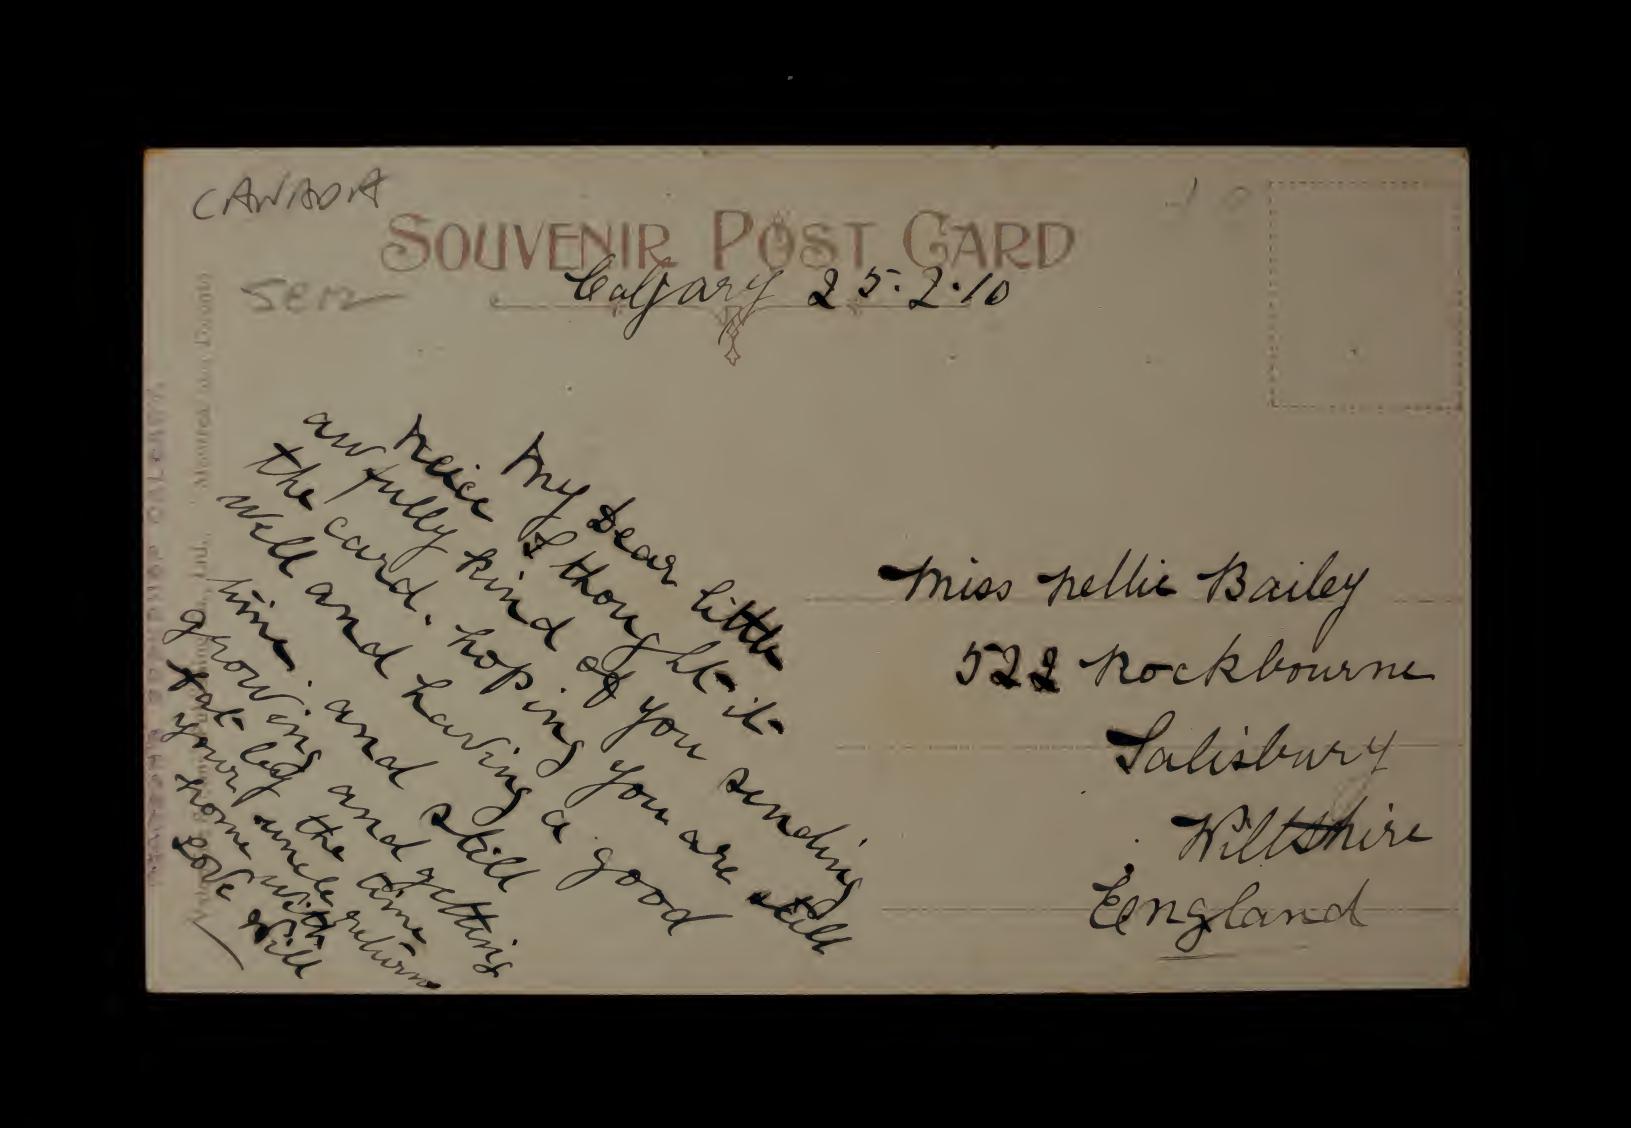 CANADA
SOUVENIR POST CARD
Calgary 25.2.10
My Dear little
neice I thought it
awfully kind of you sending
the card. hoping you are still
well and having a good
time. and still
growing and getting
fat by the time
your uncle returns
home with
Love Will
Miss Nellie Bailey
522 Rockbourne
Salisbury
Wiltshire
England